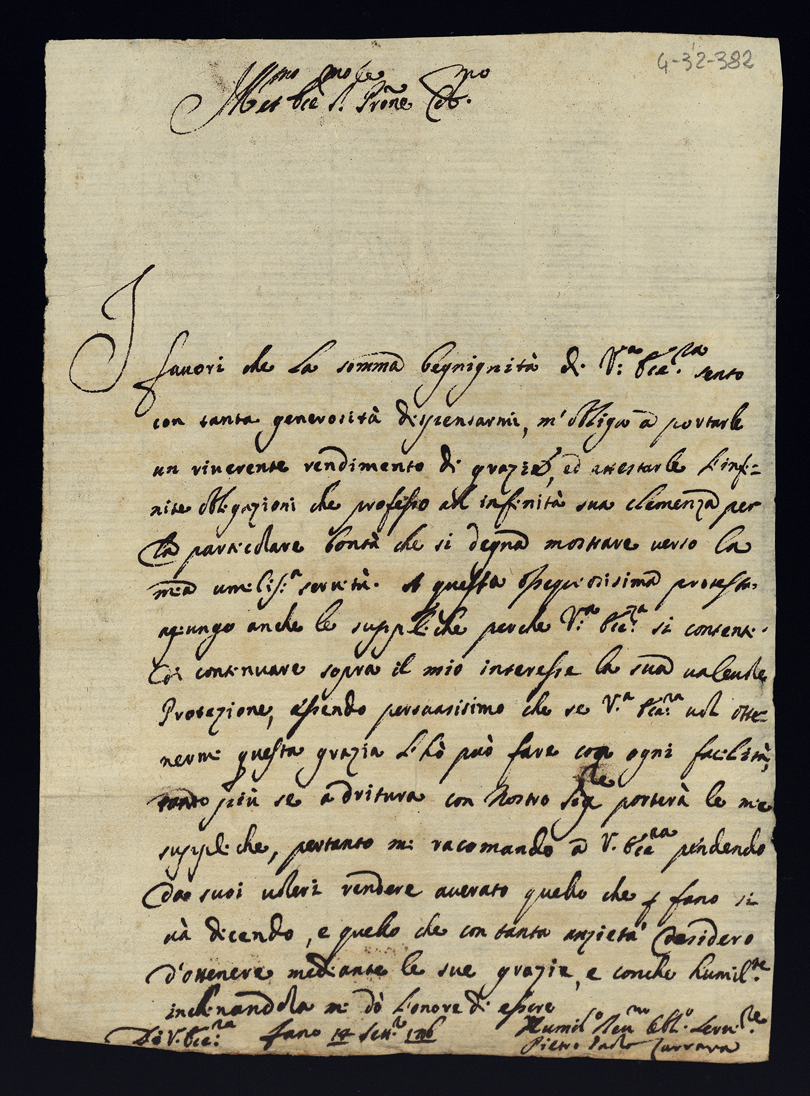 4-32-382
Ill.mo et Ecc.mo S.r Prone Col.mo
I favori che la somma begnignità di V.ra Ecc.za sento
con tanta generosità dispensarmi, m'obliga à portarle
un riverente rendimento di grazie, ed attestarle l'infi=
nite obligazioni che professo all infinità sua clemenza per
la particolare bontà che si degna mostrare verso la
mia umilis.a servitù. A questa ossequiosissima protesta
agiungo anche le suppliche perche V.ra Ecc.za si contenti
di continuare sopra il mio interesse la sua valevole
Protezione, essendo persuasissimo che se V.a Ecc.za vol otte=
nermi questa grazia l'hò può fare con ogni facilità,
tanto più se à dritura con Nostro Sig.re porterà le mie
suppliche, pertanto mi racomando à V. Ecc.za pendendo
da suoi voleri rendere averato quello che p Fano si
và dicendo, e quello che con tanta anzietà desidero
d'ottenere mediante le sue grazie, e con che humil.te
inclinandola mi dò l'onore di essere
Di V. Ecc.za Fano 14 Set.re
Humil.o Rev.mo Obbl.o Serv.re
Pietro Paolo Carrara